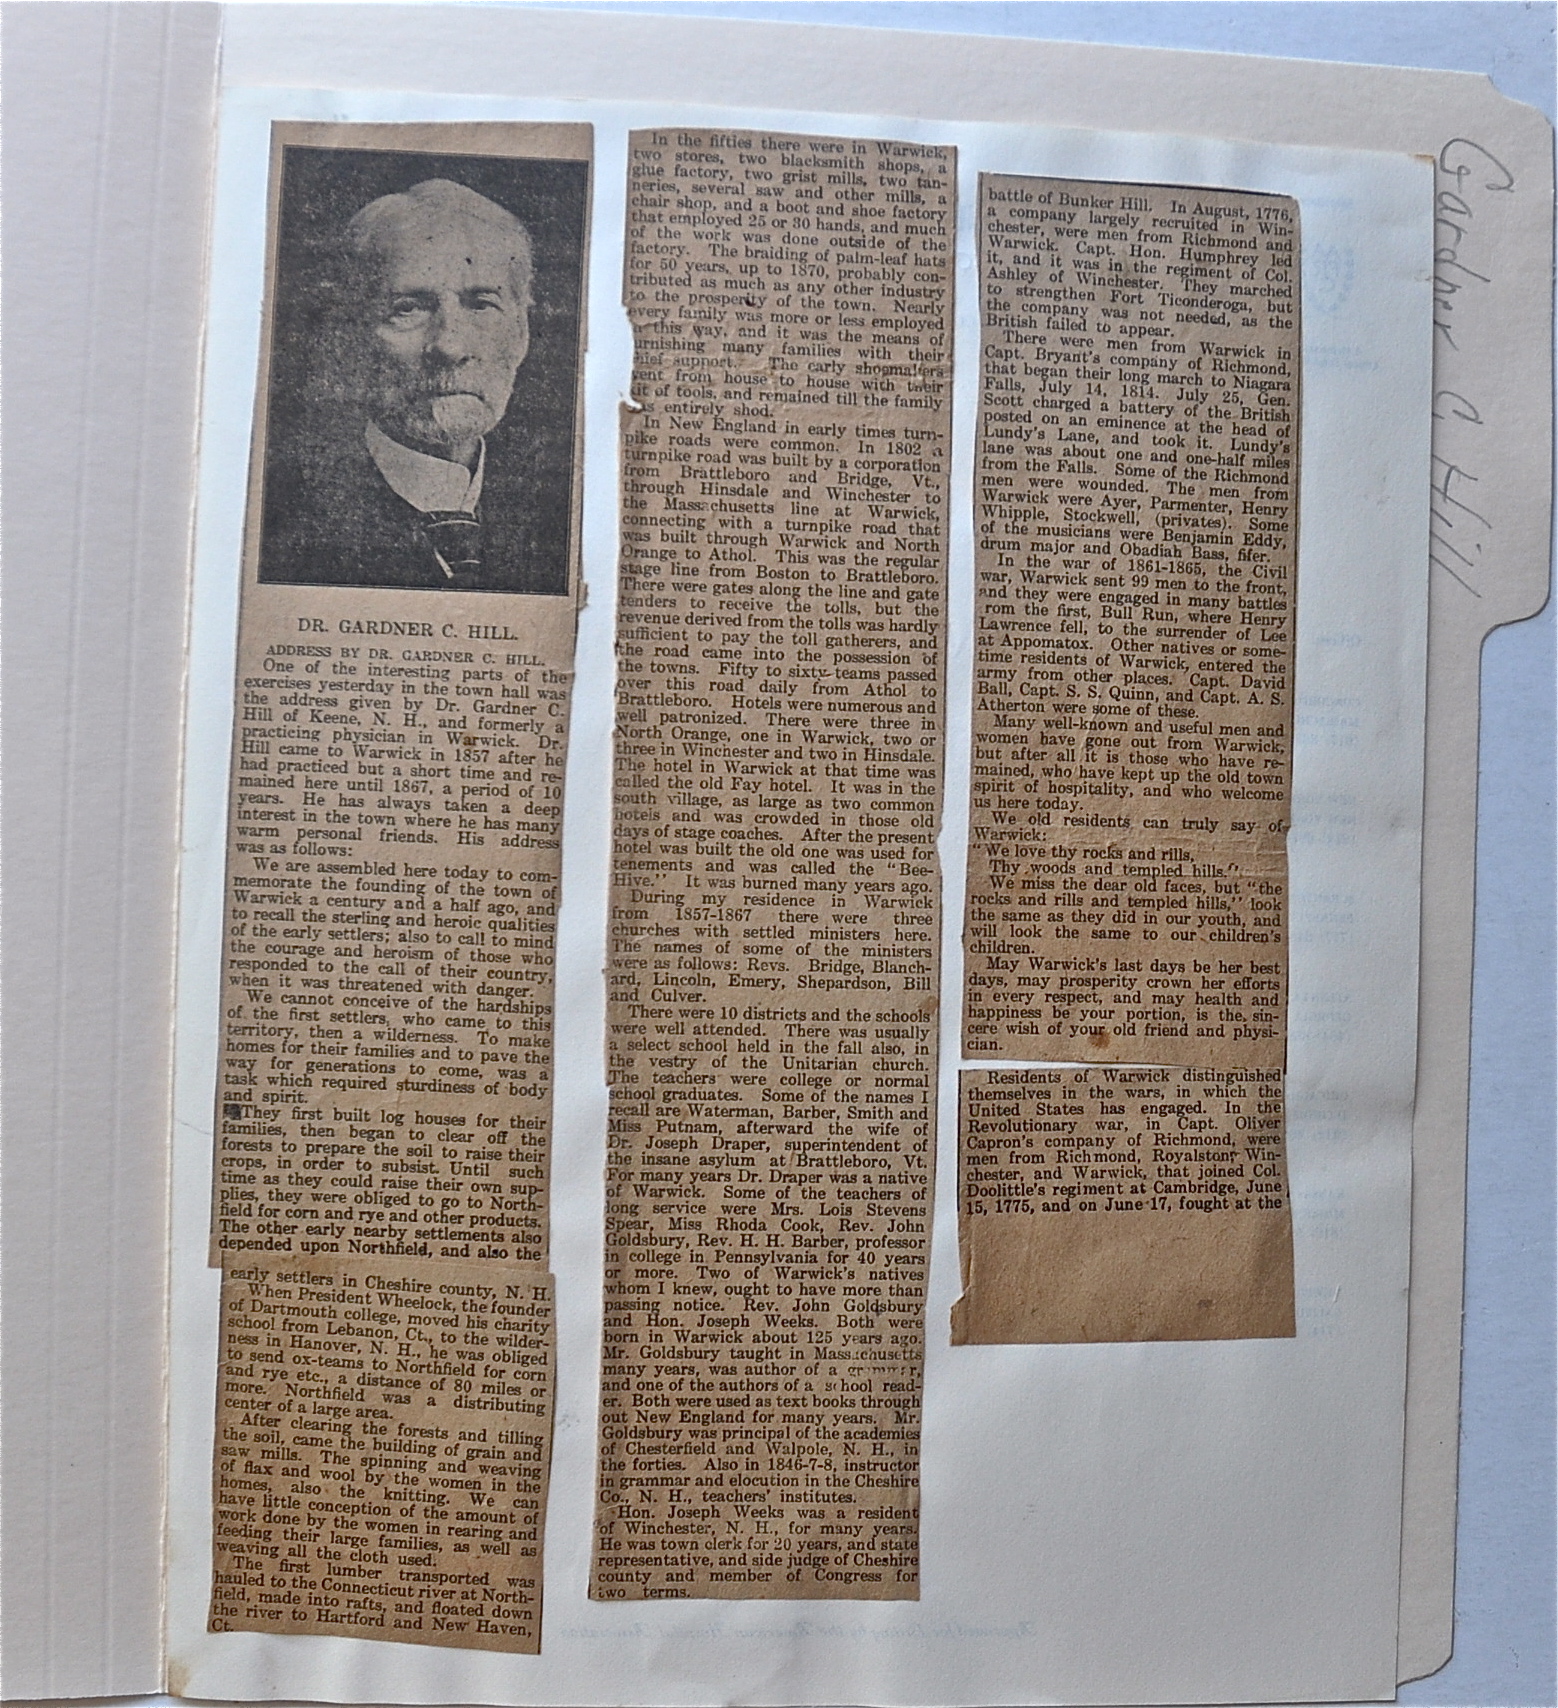 Gardner C. Hill
DR. GARDNER C. HILL.
ADDRESS BY DR. GARDNER C. HILL.
One of the interesting parts of the
exercises yesterday in the town hall was
the address given by Dr. Gardner C.
Hill of Keene, N. H., and formerly a
practicing physician in Warwick. Dr.
Hill came to Warwick in 1857 after he
had practiced but a short time and re-
mained here until 1867, a period of 10
years. He has always taken a deep
interest in the town where he has many
warm personal friends. His address
was as follows:
We are assembled here today to com-
memorate the founding of the town of
Warwick a century and a half ago, and
to recall the sterling and heroic qualities
of the early settlers; also to call to mind
the courage and heroism of those who
responded to the call of their country,
when it was threatened with danger.
We cannot conceive of the hardships
of the first settlers, who came to this
territory, then a wilderness. To make
homes for their families and to pave the
way for generations to come, was a
task which required sturdiness of body
and spirit.
They first built log houses for their
families, then began to clear off the
forests to prepare the soil to raise their
crops, in order to subsist. Until such
time as they could raise their own sup-
plies, they were obliged to go to North-
field for corn and rye and other products.
The other early nearby settlements also
depended upon Northfield, and also the
early settlers in Cheshire county, N. H.
When President Wheelock, the founder
of Dartmouth college, moved his charity
school from Lebanon, Ct., to the wilder-
ness in Hanover, N. H., he was obliged
to send ox-teams to Northfield for corn
and rye etc., a distance of 80 miles or
more. Northfield was a distributing
center of a large area.
After clearing the forests and tilling
the soil, came the building of grain and
saw mills. The spinning and weaving
of flax and wool by the women in the
homes, also the knitting. We can
have little conception of the amount of
work done by the women in rearing and
feeding their large families, as well as
weaving all the cloth used.
The first lumber transported was
hauled to the Connecticut river at North-
field, made into rafts, and floated down
the river to Hartford and New Haven,
Ct.
In the fifties there were in Warwick,
two stores, two blacksmith shops, a
glue factory, two grist mills, two tan-
neries, several saw and other mills, a
chair shop, and a boot and shoe factory
that employed 25 or 30 hands, and much
of the work was done outside of the
factory. The braiding of palm-leaf hats
for 50 years, up to 1870, probably con-
tributed as much as any other industry
to the prosperity of the town. Nearly
every family was more or less employed
n this way, and it was the means of
urnishing many families with their
hief support. The early shoemakers
vent from house to house with their
kit of tools, and remained till the family
as entirely shod.
In New England in early times turn-
pike roads were common. In 1802 a
turnpike road was built by a corporation
from Brattleboro and Bridge, Vt.,
through Hinsdale and Winchester to
the Massachusetts line at Warwick,
connecting with a turnpike road that
was built through Warwick and North
Orange to Athol. This was the regular
stage line from Boston to Brattleboro.
There were gates along the line and gate
tenders to receive the tolls, but the
revenue derived from the tolls was hardly
sufficient to pay the toll gatherers, and
the road came into the possession of
the towns. Fifty to sixty teams passed
over this road daily from Athol to
Brattleboro. Hotels were numerous and
well patronized. There were three in
North Orange, one in Warwick, two or
three in Winchester and two in Hinsdale.
The hotel in Warwick at that time was
called the old Fay hotel. It was in the
south village, as large as two common
hotels and was crowded in those old
days of stage coaches. After the present
hotel was built the old one was used for
tenements and was called the "Bee-
Hive." It was burned many years ago.
During my residence in Warwick
from 1857-1867 there were three
churches with settled ministers here.
The names of some of the ministers
were as follows: Revs. Bridge, Blanch-
ard, Lincoln, Emery, Shepardson, Bill
and Culver.
There were 10 districts and the schools
were well attended. There was usually
a select school held in the fall also, in
the vestry of the Unitarian church.
The teachers were college or normal
school graduates. Some of the names I
recall are Waterman, Barber, Smith and
Miss Putnam, afterward the wife of
Dr. Joseph Draper, superintendent of
the insane asylum at Brattleboro, Vt.
For many years Dr. Draper was a native
of Warwick. Some of the teachers of
long service were Mrs. Lois Stevens
Spear, Miss Rhoda Cook, Rev. John
Goldsbury, Rev. H. H. Barber, professor
in college in Pennsylvania for 40 years
or more. Two of Warwick's natives
whom I knew, ought to have more than
passing notice. Rev. John Goldsbury
and Hon. Joseph Weeks. Both were
born in Warwick about 125 years ago.
Mr. Goldsbury taught in Massachusetts
many years, was author of a grammar,
and one of the authors of a school read-
er. Both were used as text books through
out New England for many years. Mr.
Goldsbury was principal of the academies
of Chesterfield and Walpole, N. H., in
the forties. Also in 1846-7-8, instructor
in grammar and elocution in the Cheshire
Co., N. H., teachers' institutes.
Hon. Joseph Weeks was a resident
of Winchester, N. H., for many years.
He was town clerk for 20 years, and state
representative, and side judge of Cheshire
county and member of Congress for
two terms.
battle of Bunker Hill. In August, 1776,
a company largely recruited in Win-
chester, were men from Richmond and
Warwick. Capt. Hon. Humphrey led
it, and it was in the regiment of Col.
Ashley of Winchester. They marched
to strengthen Fort Ticonderoga, but
the company was not needed, as the
British failed to appear.
There were men from Warwick in
Capt. Bryant's company of Richmond,
that began their long march to Niagara
Falls, July 14, 1814. July 25, Gen.
Scott charged a battery of the British
posted on an eminence at the head of
Lundy's Lane, and took it. Lundy's
lane was about one and one-half miles
from the Falls. Some of the Richmond
men were wounded. The men from
Warwick were Ayer, Parmenter, Henry
Whipple, Stockwell, (privates). Some
of the musicians were Benjamin Eddy,
drum major and Obadiah Bass, fifer.
In the war of 1861-1865, the Civil
war, Warwick sent 99 men to the front,
and they were engaged in many battles
rom the first, Bull Run, where Henry
Lawrence fell, to the surrender of Lee
at Appomatox. Other natives or some-
time residents of Warwick, entered the
army from other places. Capt. David
Ball, Capt. S. S. Quinn, and Capt. A. S.
Atherton were some of these.
Many well-known and useful men and
women have gone out from Warwick,
but after all it is those who have re-
mained, who have kept up the old town
spirit of hospitality, and who welcome
us here today.
We old residents can truly say of
Warwick:
"We love thy rocks and rills,
Thy woods and templed hills."
We miss the dear old faces, but "the
rocks and rills and templed hills," look
the same as they did in our youth, and
will look the same to our children's
children.
May Warwick's last days be her best
days, may prosperity crown her efforts
in every respect, and may health and
happiness be your portion, is the sin-
cere wish of your old friend and physi-
cian.
Residents of Warwick distinguished
themselves in the wars, in which the
United States has engaged. In the
Revolutionary war, in Capt. Oliver
Capron's company of Richmond, were
men from Richmond, Royalston, Win-
chester, and Warwick, that joined Col.
Doolittle's regiment at Cambridge, June
15, 1775, and on June 17, fought at the